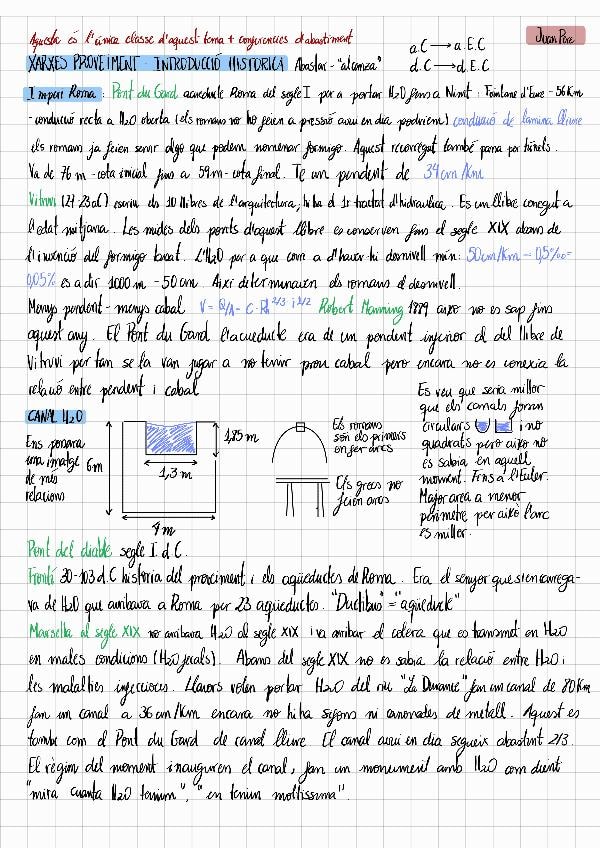 Aquesta és l'única classe d'aquest tema + conferencies d'abastiment
a.C → a.E.C
Juan Pere
XARXES PROVEÏMENT - INTRODUCCIÓ HISTÒRICA Abastar - "alcanza"
d.C → d.E.C
Imperi Roma: Pont du Gard aqüeducte Roma del segle I per a portar H2O fins a Nimit: Fontane d'Eure - 56Km
- conducció recta a H2O oberta (els romans no ho feien a pressió avui en dia podriem) conducció de lamina lliure
els romans ja feien servir algo que podem nomenar formigo. Aquest recorregut també passa per túnels.
Va de 76 m - cota inicial fins a 59m - cota final. Te un pendent de 34cm/Km
Vitruvi (27-23aC) escriu els 10 llibres de l'arquitectura, hi ha el 1r tractat d'hidraulica. Es un llibre conegut a
l'edat mitjana. Les mides dels ponts d'aquest llibre es conserven fins el segle XIX abans de
l'invenció del formigo armat. L'H2O per a que corre a d'haver hi desnivell min: 50cm/Km - 0,5‰ =
0,05% es a dir 1000 m - 50cm. Així determinaven els romans el desnivell.
Menys pendent - menys cabal V = Q/A = C·Rh^2/3 · i^1/2 Robert Manning 1889 això no es sap fins
aquest any. El Pont du Gard l'acueducte era de un pendent inferior al del llibre de
Vitruvi per tan se la van jugar a no tenir prou cabal pero encara no es coneixia la
relació entre pendent i cabal
CANAL H2O
Ens posara
una imatge
de més
relacions
6m
1,85 m
1,3 m
4 m
Els romans
són els primers
en fer arcs
Els grecs no
feien arcs
Es veu que seria millor
que els canals foren
circulars i no
quadrats pero això no
es sabia en aquell
moment. Fins a l'Euler.
Major area a menor
perimetre per això l'arc
es miller.
Pont del diable segle I d.C.
Fronti 30-103 d.C historia del proveiment i els aqüeductes de Roma. Era el senyor que s'encarrega-
va de H2O que arribava a Roma per 23 aqüeductes. "Ductibus" = "aqüeducte"
Marsella al segle XIX no arribava H2O al segle XIX i va arribar el colera que es transmet en H2O
en males condicions (H2O fecals). Abans del segle XIX no es sabia la relació entre H2O i
les malalties infeccioses. Llavors volen portar H2O del riu "La Durance" fan un canal de 80Km
fan un canal a 36 cm/Km encara no hi ha sifons ni canonades de metall. Aquest es
també com el Pont du Gard de canal lliure. El canal avui en dia segueix abastint 2/3.
El règim del moment inauguren el canal, fan un monument amb H2O com dient
"mira cuanta H2O tenium", "en tenim moltissima".